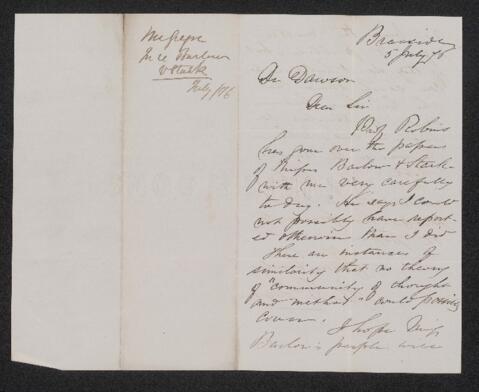 McGregor
In re Barlow
& Stark
July /76
Braeside
5 July 76
Dr Dawson
Dear Sir
Prof Robins
has gone over the papers
of Misses Barlow & Stark
with me very carefully
to day. He says I could
not possibly have report-
ed otherwise than I did
There are instances of
similarity that no theory
of "community of thought
and method" could possibly
cover.
I hope Miss
Barlow's people will